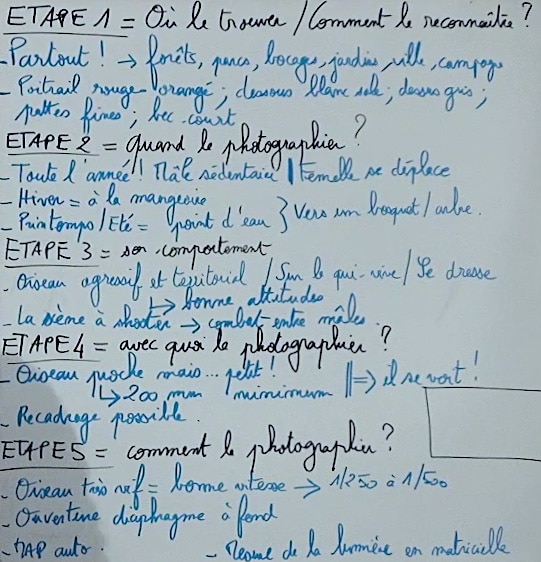 ETAPE 1 = Où le trouver / Comment le reconnaître ?
- Partout ! → forêts, parcs, bocages, jardins, ville, campagne
- Poitrail rouge orangé ; dessous blanc sale ; dessus gris ;
pattes fines ; bec court
ETAPE 2 = quand le photographier ?
- Toute l'année ! Mâle sédentaire || Femelle se déplace
- Hiver = à la mangeoire
- Printemps / Eté = point d'eau } Vers un bosquet / arbre.
ETAPE 3 = son comportement
- Oiseau agressif et territorial / Sur le qui-vive / Se dresse
↳ bonne attitudes
- La scène à shooter → combat entre mâles
ETAPE 4 = avec quoi le photographier ?
- Oiseau proche mais... petit !
↳ 200 mm minimum ||⇒ il se voit !
- Recadrage possible.
ETAPE 5 = comment le photographier ?
- Oiseau très vif = bonne vitesse → 1/250 à 1/500
- Ouverture diaphragme à fond
- MAP auto. - Mesure de la lumière en matricielle